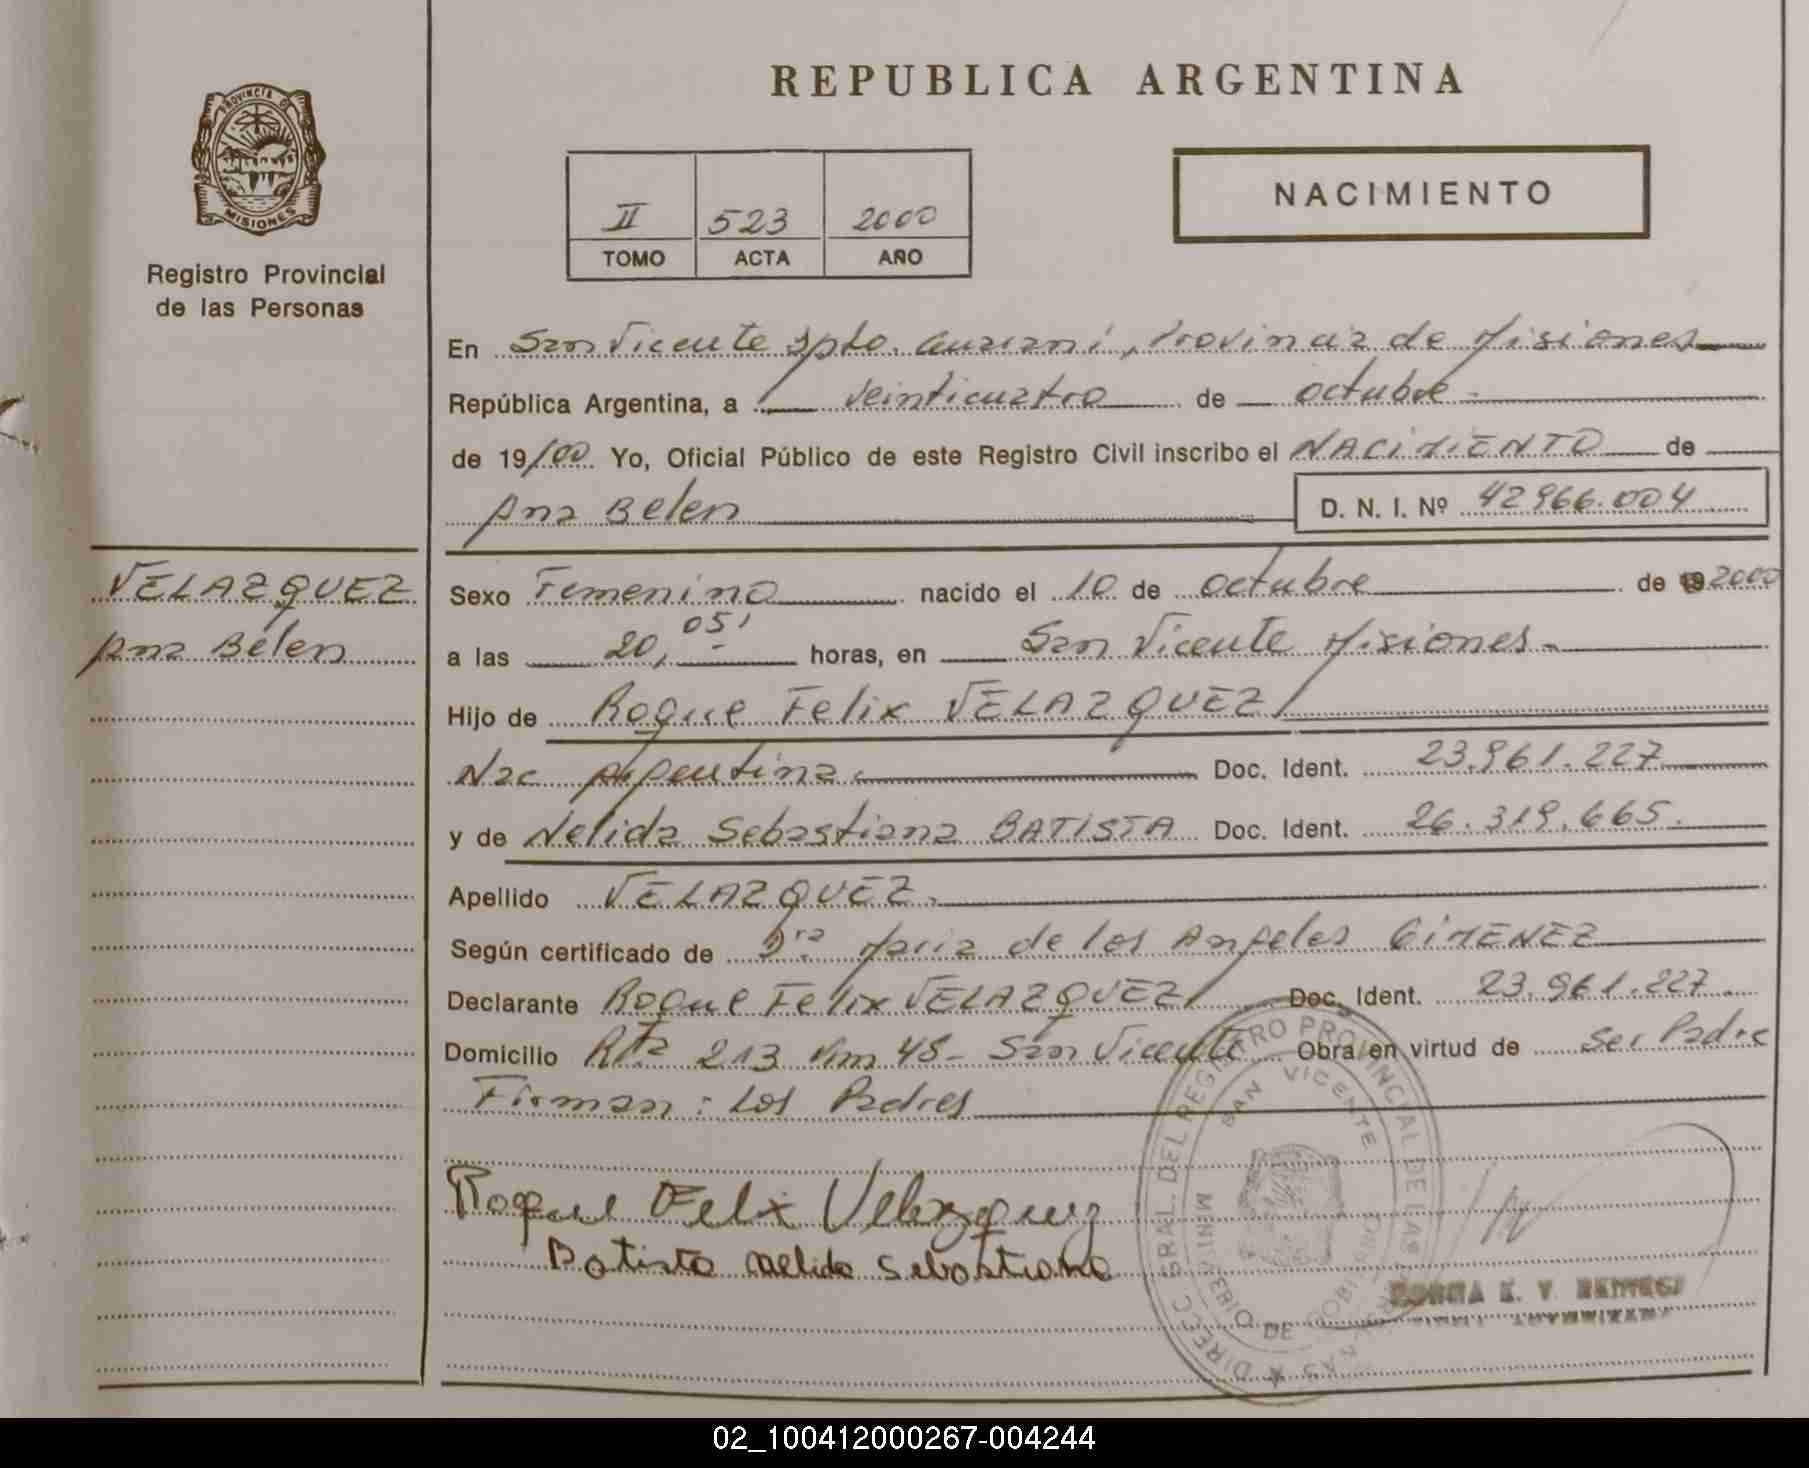 PROVINCIA DE
MISIONES
Registro Provincial
de las Personas
VELAZQUEZ
Ana Belen
REPUBLICA ARGENTINA
II 523 2000
TOMO ACTA AÑO
NACIMIENTO
En San Vicente Dpto. Guarani, Provincia de Misiones
República Argentina, a veinticuatro de octubre
de 19/00 Yo, Oficial Público de este Registro Civil inscribo el NACIMIENTO de
Ana Belen D. N. I. Nº 42966.004
Sexo Femenino nacido el 10 de octubre de 2000
a las 20,05' horas, en San Vicente Misiones.-
Hijo de Roque Felix VELAZQUEZ
Nac Argentina. Doc. Ident. 23.961.227
y de Nelida Sebastiana BATISTA Doc. Ident. 26.319.665.
Apellido VELAZQUEZ.
Según certificado de Dra Maria de los Angeles GIMENEZ
Declarante Roque Felix VELAZQUEZ Doc. Ident. 23.961.227
Domicilio Rta 213 Km 48- San Vicente Obra en virtud de ser Padre
Firman: Los Padres
Roque Felix Velazquez
Batista Nelida Sebastiana
DIRECC GRAL. DEL REGISTRO PROVINCIAL DE LAS PERSONAS
SAN VICENTE
MINISTERIO DE GOBIERNO
NORMA E. V.
02_100412000267-004244